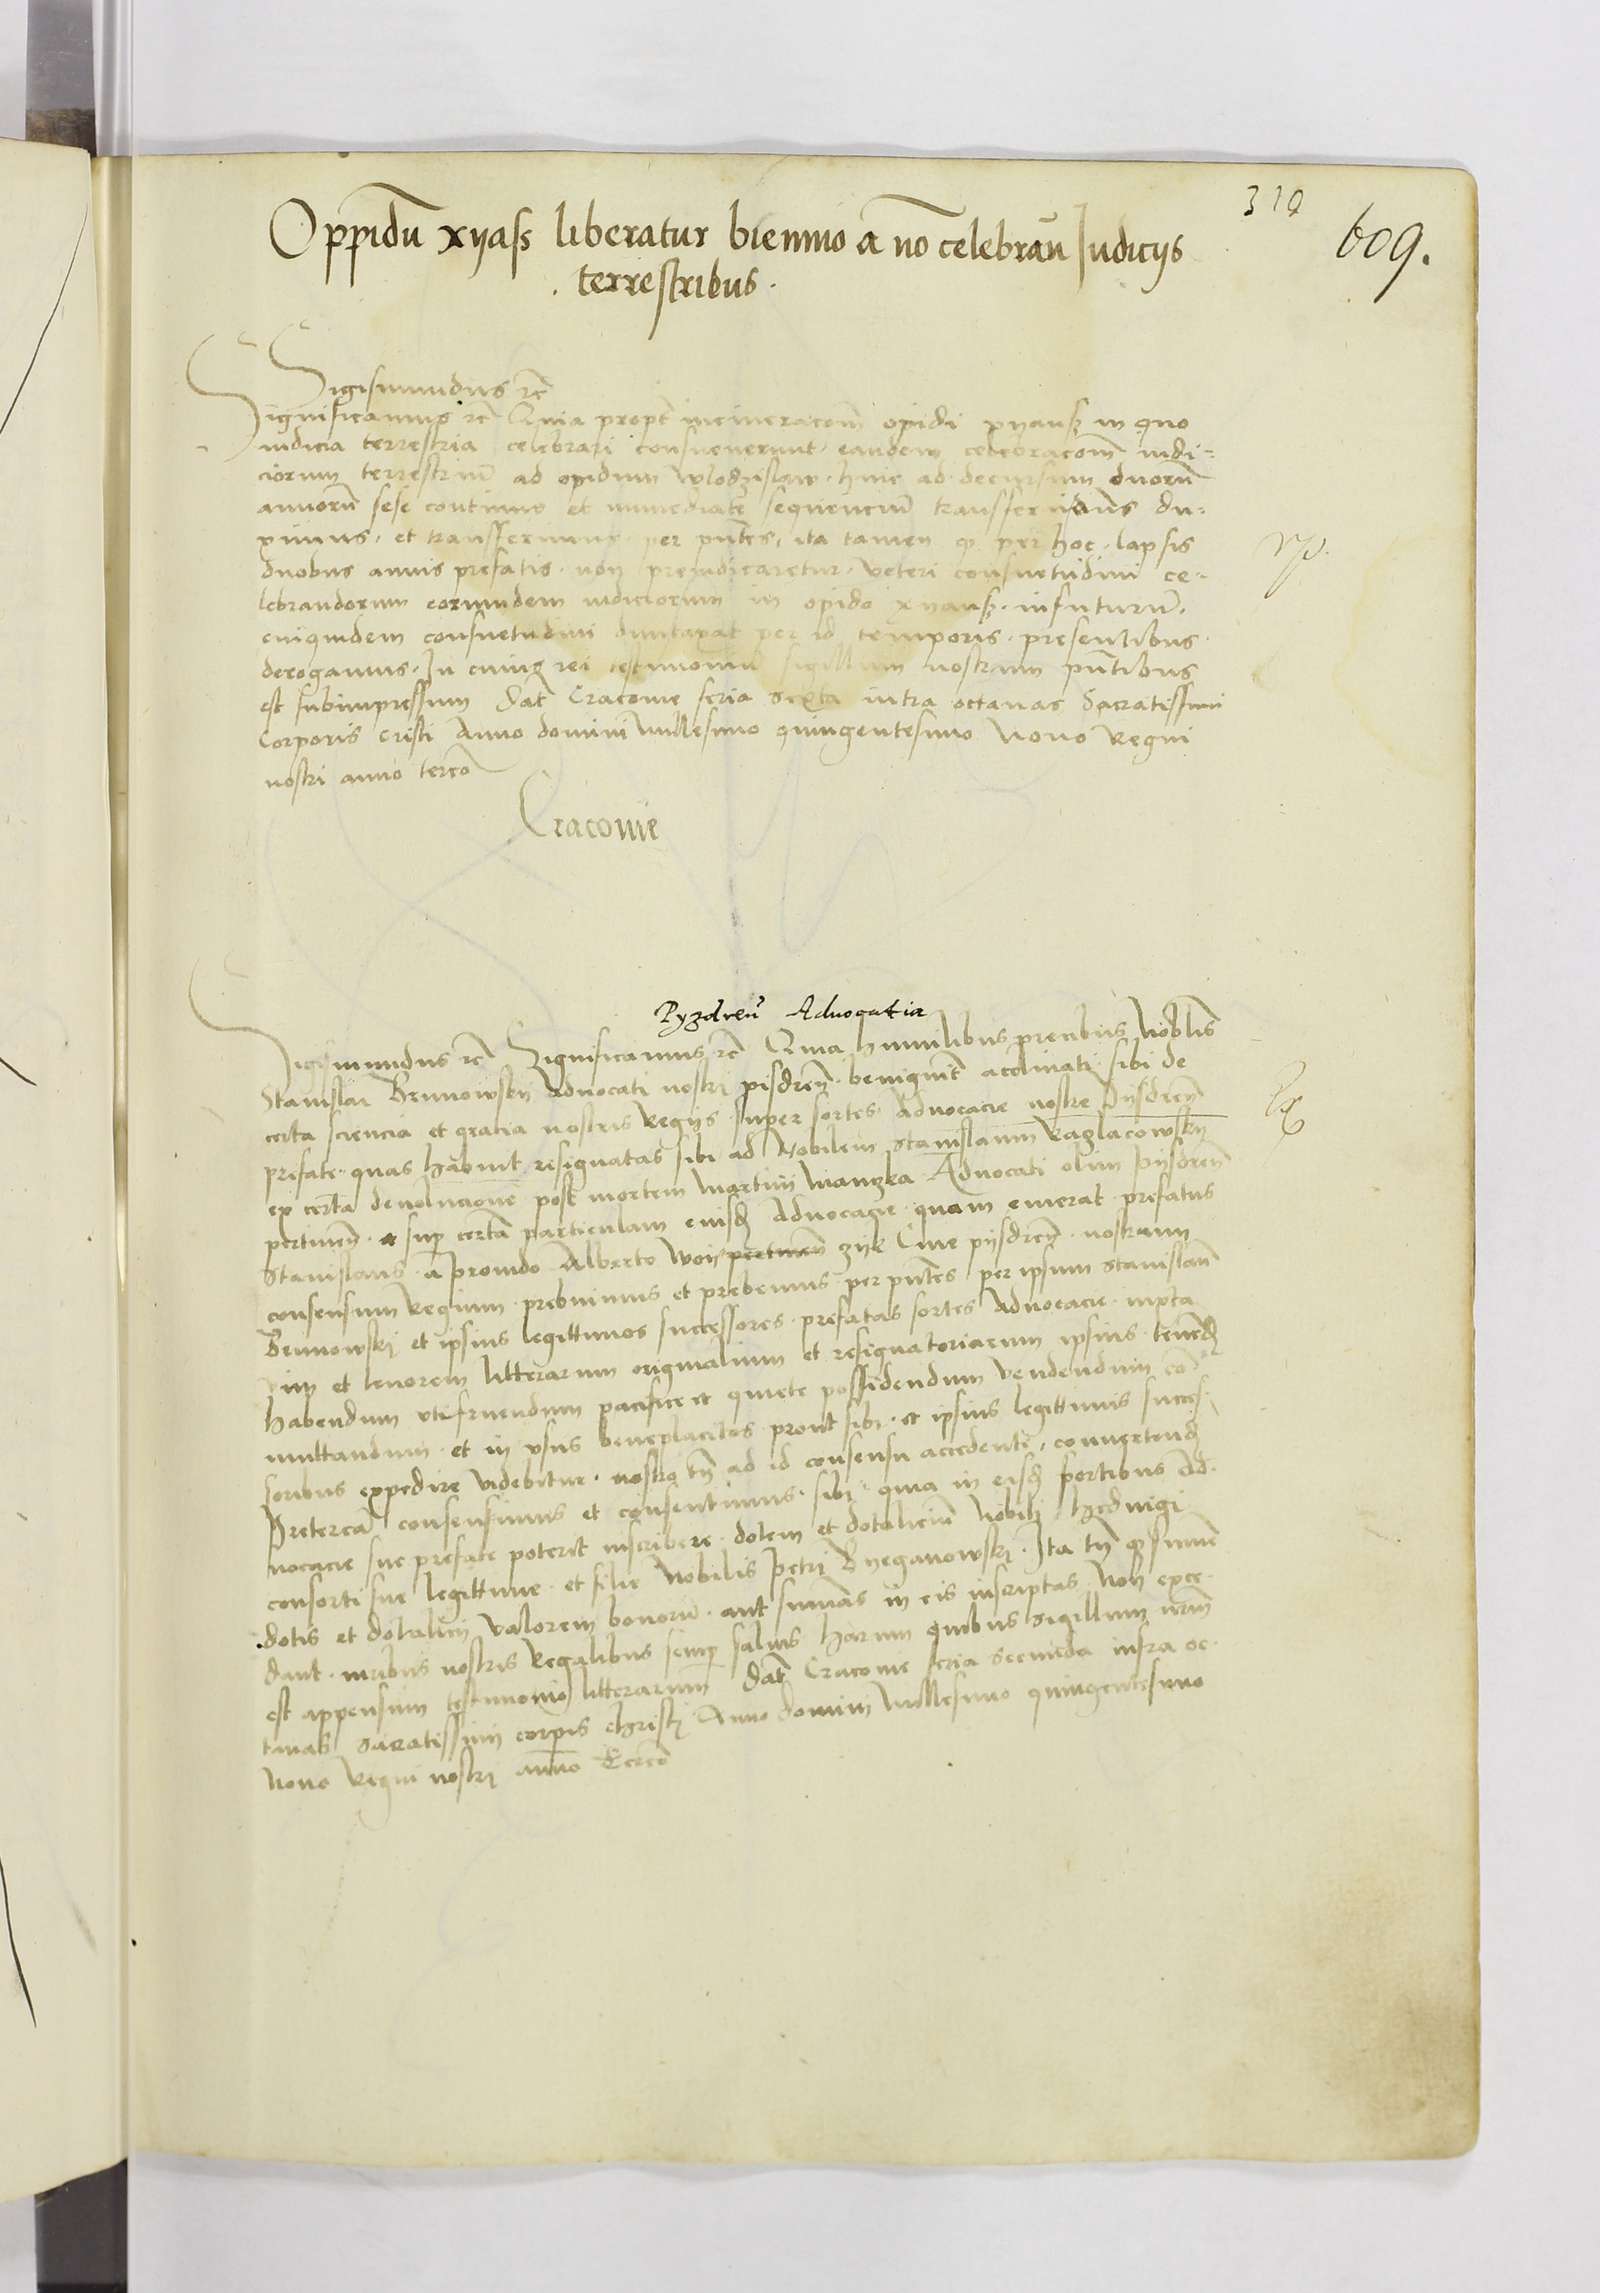 310
609.
Oppidu xyass liberatur biennio a no celebran Iudicijs
terrestribus.
Sigismundus rc
Significamus rc Quia propt incineracom opidi xyansz in quo
iudicia terrestria celebrari consueuerunt, eandem celebracom iudi-
ciorum terrestriu ad opidum Wlodzislaw. hinc ad decursum duoru
annoru sese continue et immediate sequenciu transferendus du-
ximus, et transferimus per pntes, ita tamen q per hoc. lapsis
duobus annis prefatis. non preiudicaretur. veteri consuetudini ce-
lebrandorum eorumdem iudiciorum in opido xyansz. infuturu.
cuiquidem consuetudini duntaxat per id temporis. presentibus.
derogamus. In cuius rei testimoniu sigillum nostrum pntibus
est subimpressum Dat Cracouie feria sexta intra octauas Sacratissimi
Corporis cristi Anno domini Millesimo quingentesimo Nono Regni
nostri anno tercio
Cracouie
Pyzdren Aduocatia
Sigismundus rc Significamus rc Quia humilibus precibus Noblis
Stanislai Brunowsky Aduocati nostri pisdren. benignit acclinati. sibi de
certa sciencia et gracia nostris Regijs super sortes Aduocacie nostre Pijsdren
prefate. quas habuit resignatas sibi ad Nobilem Stanislaum Raglacowsky
ex certa deuolucione post mortem Martini Manzka Aduocati olim Pijsdren
pertinen. a sup certa particulam eiusd Aduocacie quam emerat prefatus
Stanislaus a prouido Alberto Woy zijk Ciue pijsdren. nostrum
consensum Regium. prebuimus et prebemus per pntes per ipsum Stanislau
Brunowsky et ipsius legittimos successores. prefatas sortes Aduocacie. iuxta
vim et tenorem litterarum originalium et resignatoriarum ipsius. tenend
habendum vtifruendum pacifice et quiete possidendum vendendum co
mutandum. et in vsus beneplacitos prout sibi. et ipsius legittimis succes-
soribus expedire videbitur. nostro tn ad id consensu accedente, conuertend
Preterea consensimus et consentimus. sibi quia in eisd sortibus Ad-
uocacie sue prefate poterit inscribere. dotem et dotaliciu Nobili Hedwigi
consorti sue legittime. et filie Nobilis Petri Byeganowsky. Ita tn q summe
dotis et dotalicij valorem bonoru. aut summas in eis inscriptas non exce-
dant. iuribus nostris Regalibus semp saluis Harum quibus sigillum nrm
est appensum testimonio litterarum Dat Cracouie feria secunda infra oc-
tauas sacratissimi corpis christi Anno domini Millesimo quingentesimo
Nono Regni nostri anno Tercio